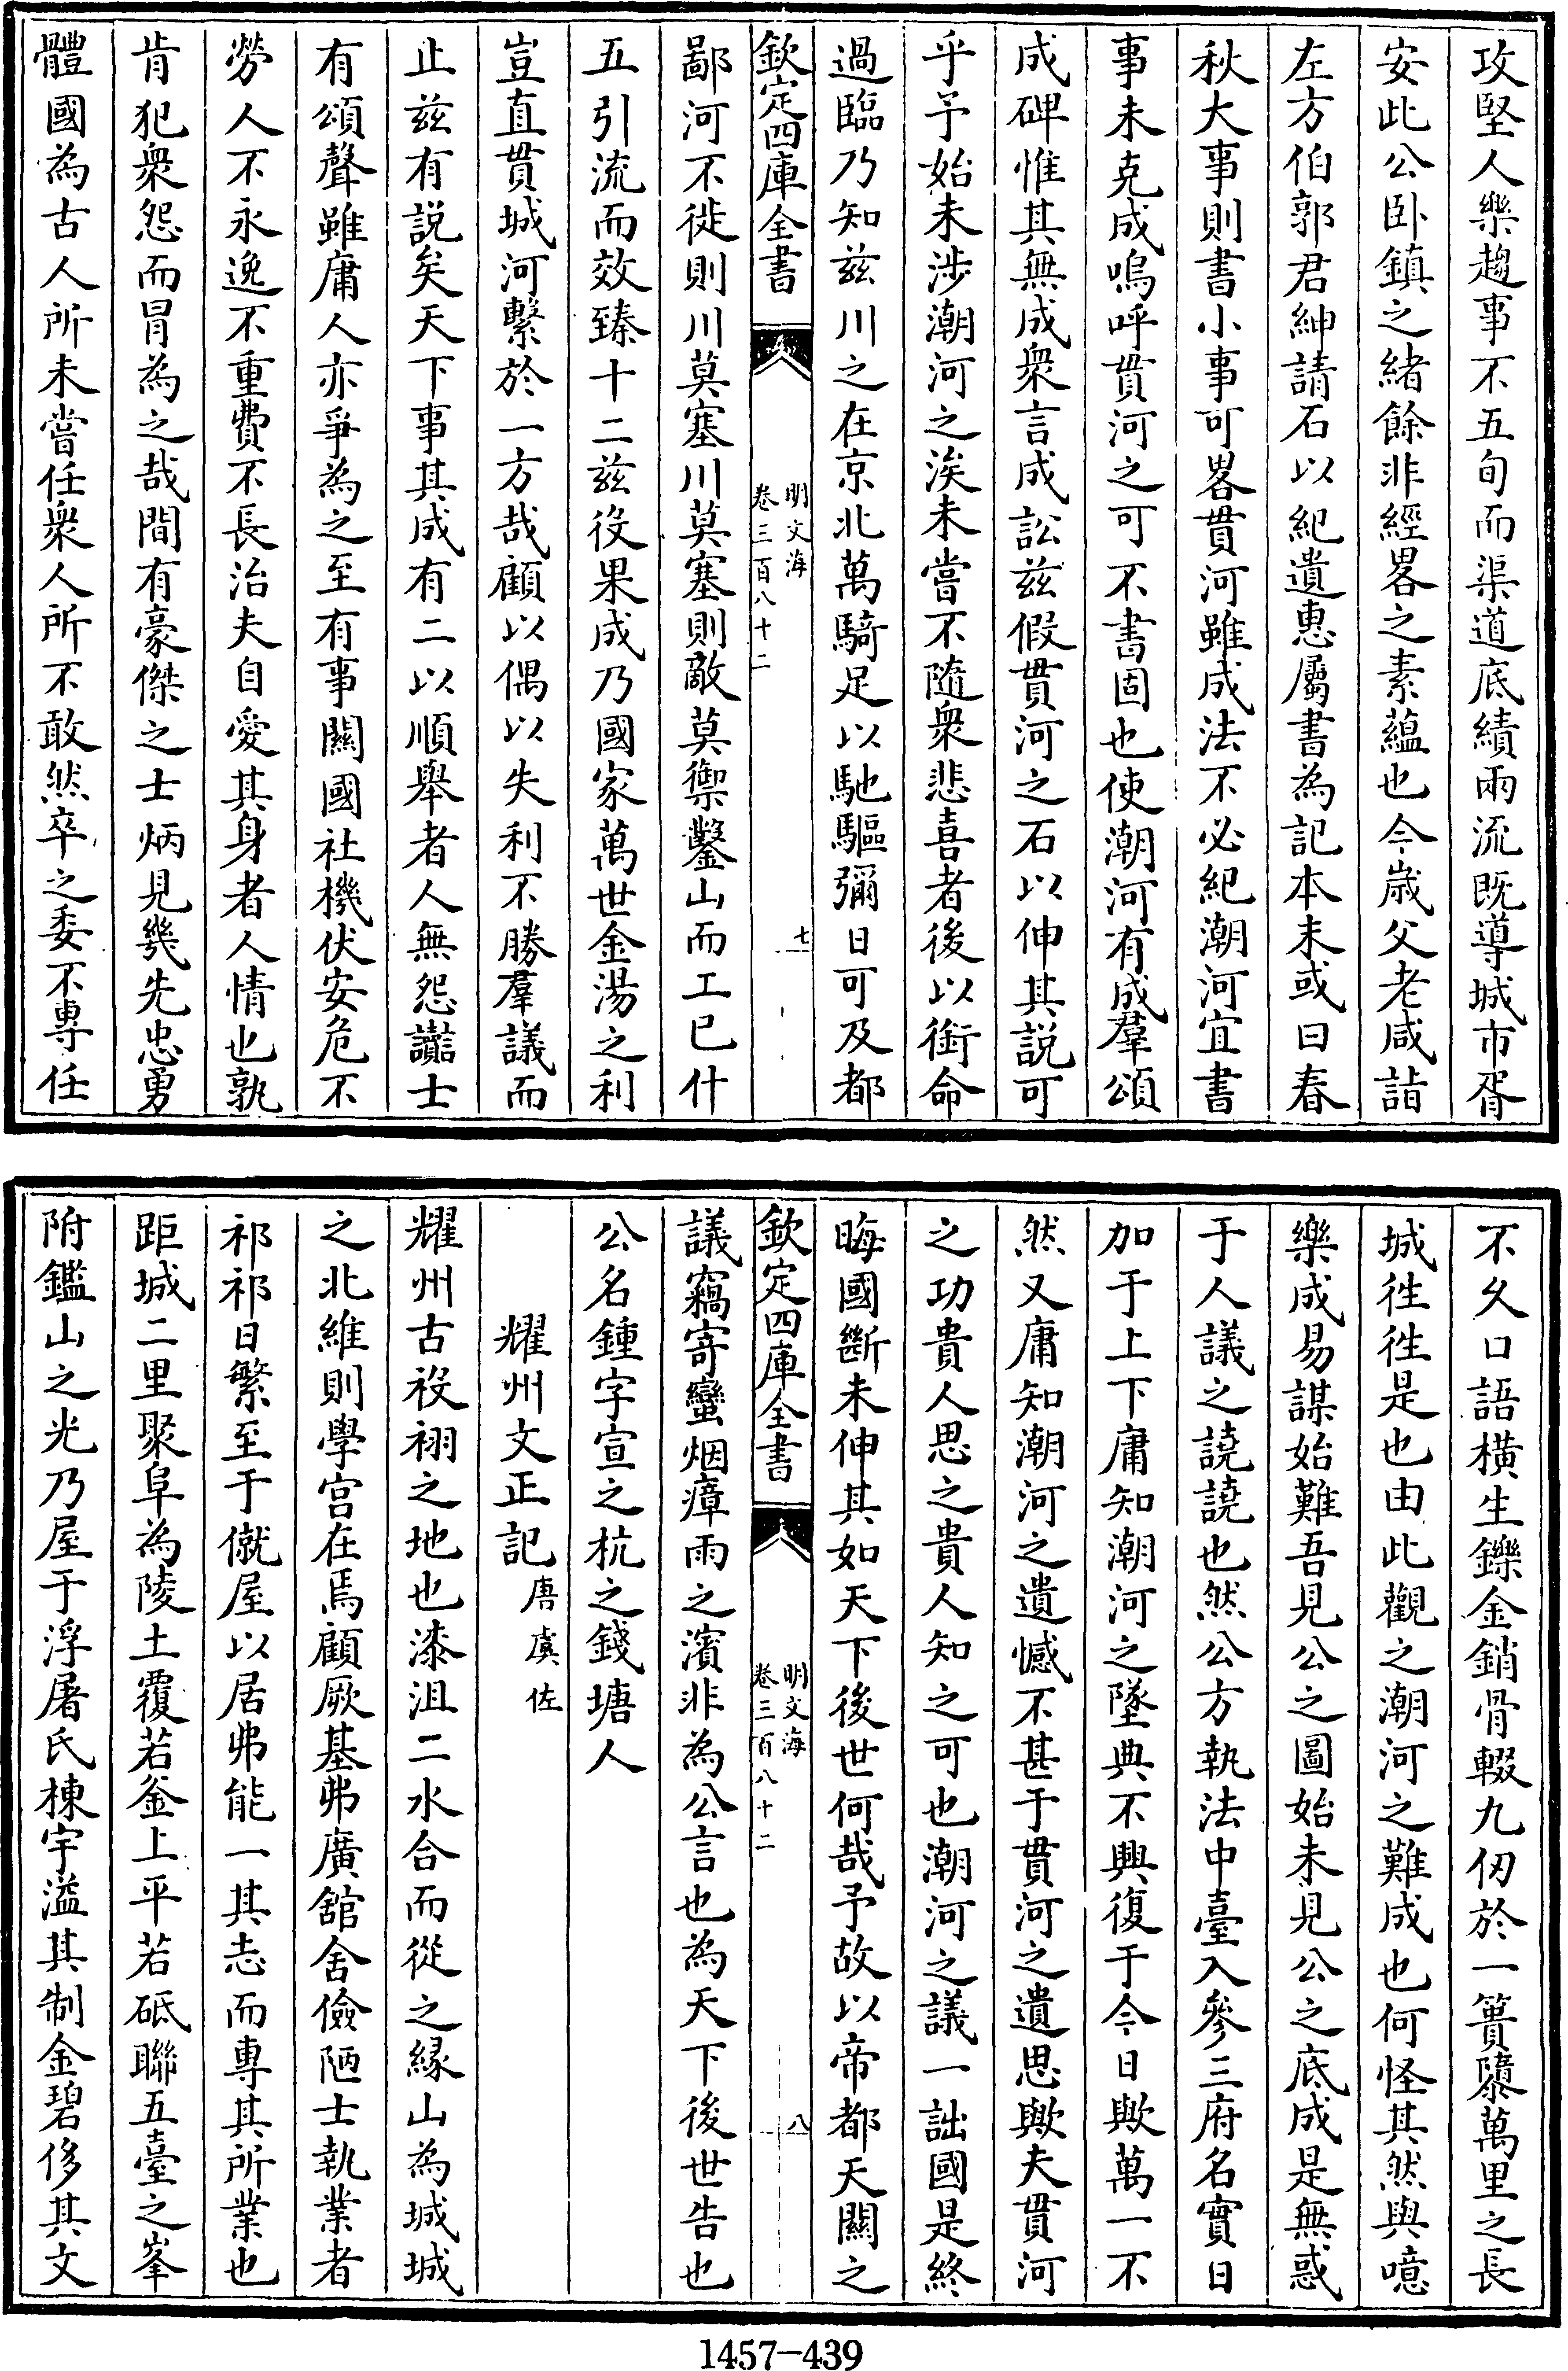 攻堅人樂趨事不五旬而渠道底績兩流既導城市胥
安此公卧鎮之緒餘非經畧之素蘊也今歳父老咸詣
左方伯郭君紳請石以紀遺惠屬書為記本末或曰春
秋大事則書小事可畧貫河雖成法不必紀潮河宜書
事未克成嗚呼貫河之可不書固也使潮河有成羣頌
成碑惟其無成衆言成訟兹假貫河之石以伸其説可
乎予始未涉潮河之涘未嘗不隨衆悲喜者後以銜命
過臨乃知兹川之在京北萬騎足以馳驅彌日可及都
欽定四庫全書
明文海
卷三百八十二
七
鄙河不徙則川莫塞川莫塞則敵莫禦鑿山而工已什
五引流而效臻十二兹役果成乃國家萬世金湯之利
豈直貫城河繫於一方哉顧以偶以失利不勝羣議而
止兹有説矣天下事其成有二以順舉者人無怨讟士
有頌聲雖庸人亦爭為之至有事關國社機伏安危不
勞人不永逸不重費不長治夫自愛其身者人情也孰
肯犯衆怨而冐為之哉間有豪傑之士炳見幾先忠勇
體國為古人所未嘗任衆人所不敢然卒之委不専任
不久口語橫生鑠金銷骨輟九仭於一簣隳萬里之長
城徃徃是也由此觀之潮河之難成也何怪其然與噫
樂成易謀始難吾見公之圖始未見公之底成是無惑
于人議之譊譊也然公方執法中臺入參三府名實日
加于上下庸知潮河之墜典不興復于今日歟萬一不
然又庸知潮河之遺憾不甚于貫河之遺思歟夫貫河
之功貴人思之貴人知之可也潮河之議一詘國是終
晦國斷未伸其如天下後世何哉予故以帝都天關之
欽定四庫全書
明文海
卷三百八十二
八
議竊寄蠻烟瘴雨之濱非為公言也為天下後世告也
公名鍾字宣之杭之錢塘人
耀州文正記唐虞佐
耀州古祋祤之地也漆沮二水合而從之縁山為城城
之北維則學宫在焉顧厥基弗廣舘舍儉陋士執業者
祁祁日繁至于僦屋以居弗能一其志而專其所業也
距城二里聚阜為陵土覆若釜上平若砥聯五臺之峯
附鑑山之光乃屋于浮屠氏棟宇溢其制金碧侈其文
1457-439